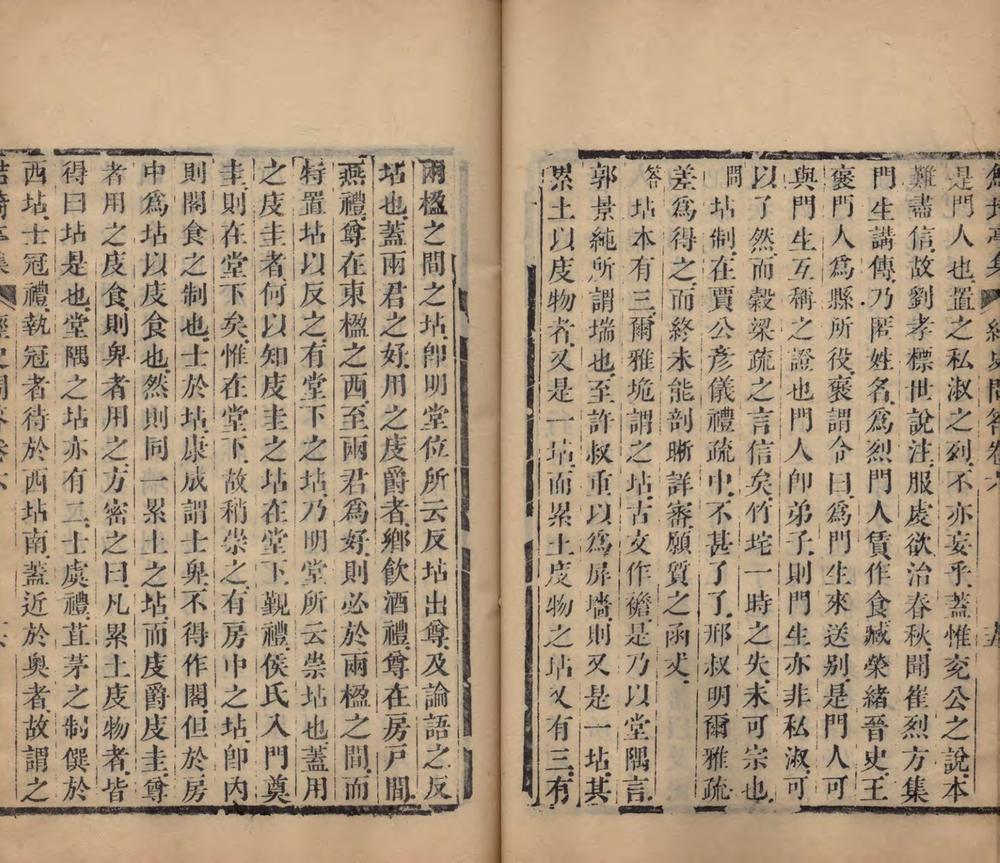 鮚埼亭集 經史問答卷六 五
是門人也置之私淑之列不亦妄乎蓋惟兗公之說本
難盡信故劉孝標世說注服虔欲治春秋聞崔烈方集
門生講傳乃匿姓名為烈門人賃作食臧榮緒晉史王
褒門人為縣所役褒謂令曰為門生來送別是門人可
與門生互稱之證也門人卽弟子則門生亦非私淑可
以了然而穀梁疏之言信矣竹垞一時之失未可宗也
問坫制在賈公彥儀禮疏中不甚了了邢叔明爾雅疏
差為得之而終未能剖晰詳審願質之函丈
答坫本有三爾雅垝謂之坫古文作襜是乃以堂隅言
郭景純所謂㙐也至許叔重以為屏墻則又是一坫其
累土以庋物者又是一坫而累土庋物之坫又有三有
兩楹之間之坫卽明堂位所云反坫出尊及論語之反
坫也蓋兩君之好用之庋爵者鄉飲酒禮尊在房戸間
燕禮尊在東楹之西至兩君為好則必於兩楹之間而
特置坫以反之有堂下之坫乃明堂所云崇坫也蓋用
之庋圭者何以知庋圭之坫在堂下覲禮侯氏入門奠
圭則在堂下矣惟在堂下故稍崇之有房中之坫卽內
則閣食之制也士於坫康成謂士卑不得作閣但於房
中為坫以庋食也然則同一累土之坫而庋爵庋圭尊
者用之庋食則卑者用之方密之曰凡累土庋物者皆
得曰坫是也堂隅之坫亦有二士虞禮苴茅之制僎於
西坫士冠禮執冠者待於西坫南蓋近於奥者故謂之
鮚埼亭集 經史問答卷六 六